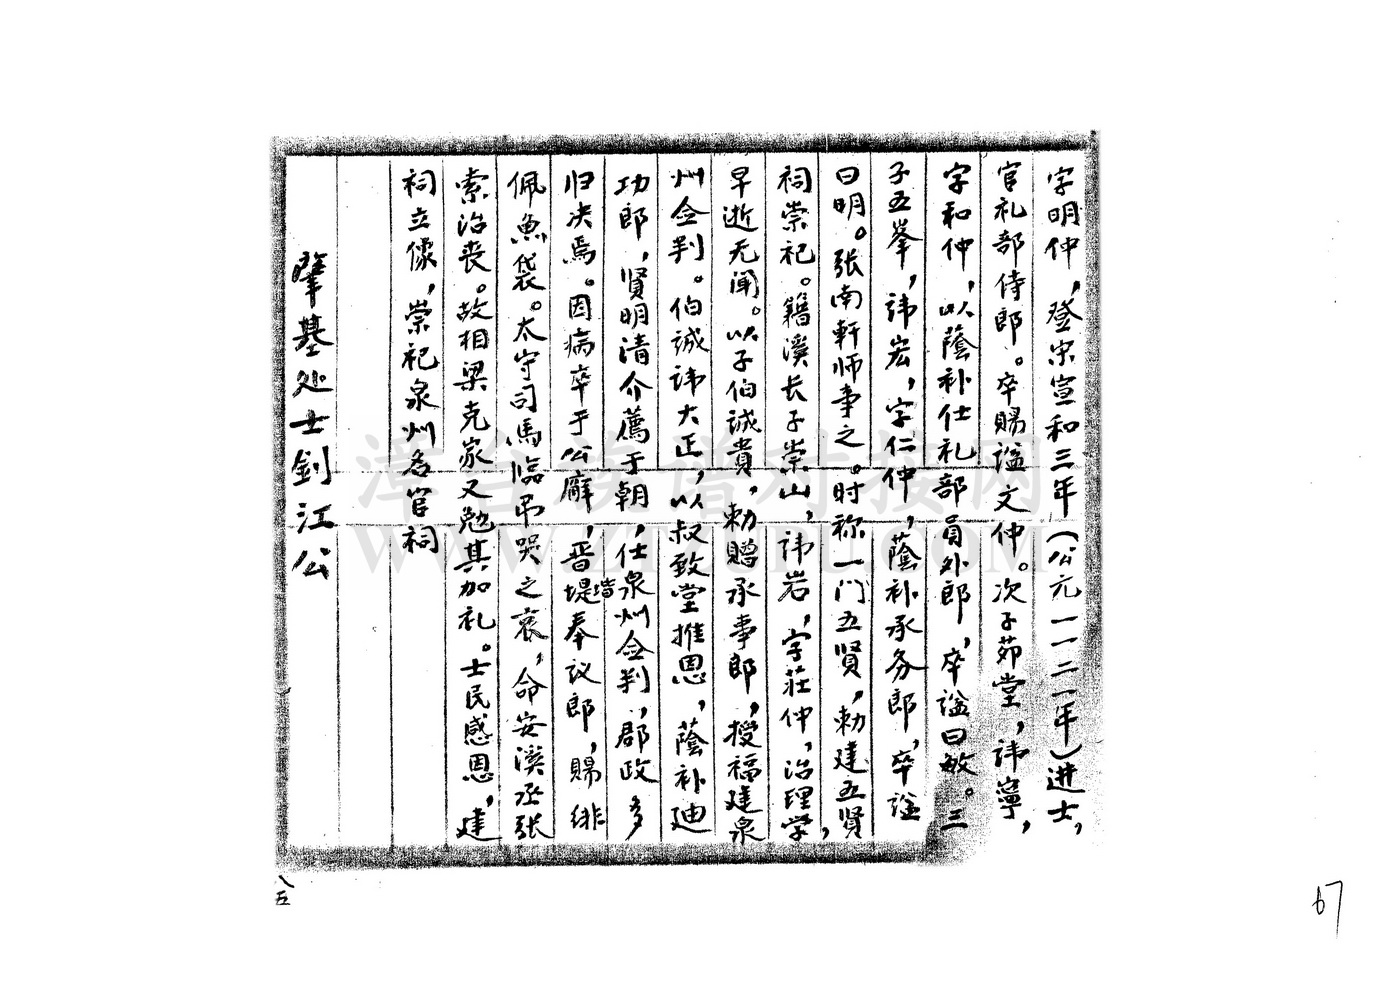 字明仲，登宋宣和三年（公元一一二一年）进士，
官礼部侍郎。卒赐谥文仲。次子茆堂，讳寧，
字和仲，以蔭补仕礼部員外郎，卒谥曰敏。三
子五峯，讳宏，字仁仲，蔭补承务郎，卒谥
曰明。张南軒师事之。时称一门五贤，勅建五贤
祠崇祀。籍溪长子崇山，讳岩，字莊仲，治理学，
早逝无闻。以子伯诚貴，勅贈承事郎，授福建泉
州佥判。伯诚讳大正，以叔致堂推恩，蔭补迪
功郎，贤明清介薦于朝，仕泉州佥判，郡政多
归决焉。因病卒于公廨，晋堦奉议郎，赐绯
佩魚袋。太守司馬臨吊哭之哀，命安溪丞张
索治丧。故相梁克家又勉其加礼。士民感恩，建
祠立像，崇祀泉州名官祠
肇基处士劍江公
八五
67
潭台族谱对接网
WWW.ZTZUPU.COM